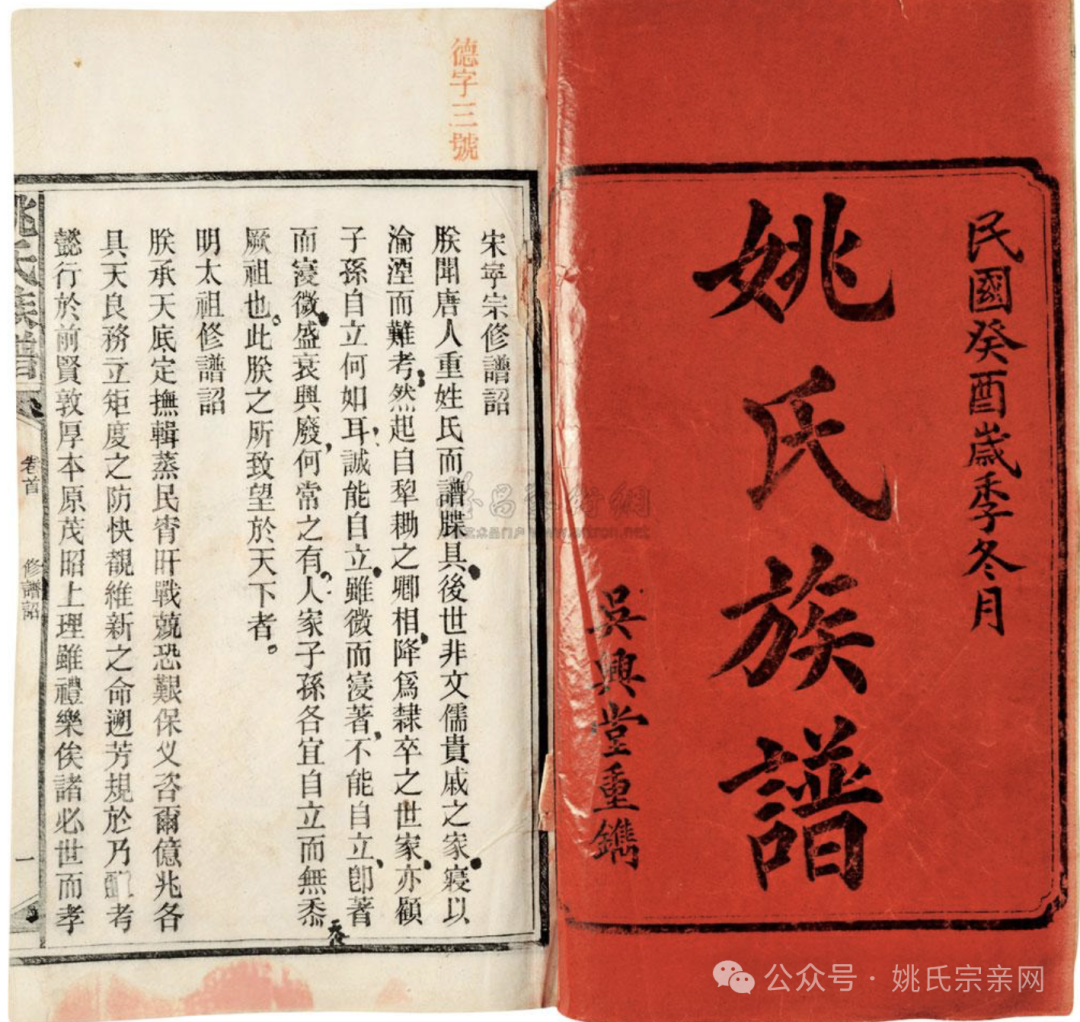 民國癸酉歲季冬月
姚氏族譜
吳興堂重鐫
德字三號
宋寧宗修譜詔
朕聞唐人重姓氏而譜牒具後世非文儒貴戚之家寖以
淪湮而難考然起自犂耡之卿相降爲隸卒之世家亦顧
子孫自立何如耳誠能自立雖微而寖著不能自立卽著
而寖微盛衰興廢何常之有人家子孫各宜自立而無忝
厥祖也此朕之所致望於天下者
明太祖修譜詔
朕承天底定撫輯蒸民宵旰戰兢恐艱保乂咨爾億兆各
具天良務立矩度之防快覩維新之命遡芳規於乃 考
懿行於前賢敦厚本原茂昭上理雖禮樂俟諸必世而孝
姚氏族譜
卷首
修譜詔
一
公众号·姚氏宗亲网